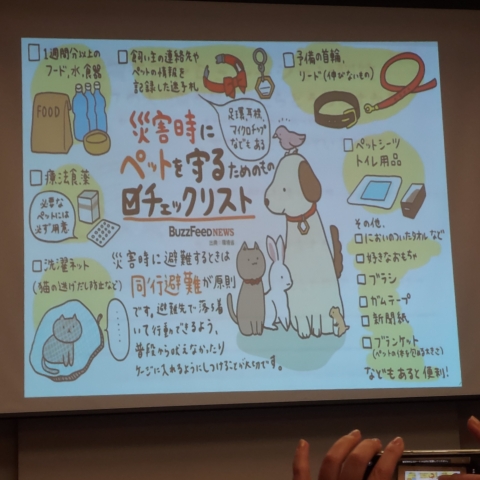 □1週間分以上の
フード、水、食器
FOOD
□飼い主の連絡先や
ペットの情報を
記録した迷子札
足環、耳標、
マイクロチップ
などもある
□予備の首輪、
リード(伸びないもの)
災害時に
ペットを守るためのもの
☑チェックリスト
BuzzFeed NEWS
出典:環境省
□療法食、薬
必要な
ペットには
必ず用意
□ペットシーツ
トイレ用品
□洗濯ネット
(猫の逃げだし防止など)
災害時に避難するときは
同行避難が原則
です。避難先で落ち着
いて行動できるよう、
普段から吠えなかったり
ケージに入れるようにしつけることが大切です。
その他、
□においのついたタオルなど
□好きなおもちゃ
□ブラシ
□ガムテープ
□新聞紙
□ブランケット
(ペットの体を包める大きさ)
などもあると便利!